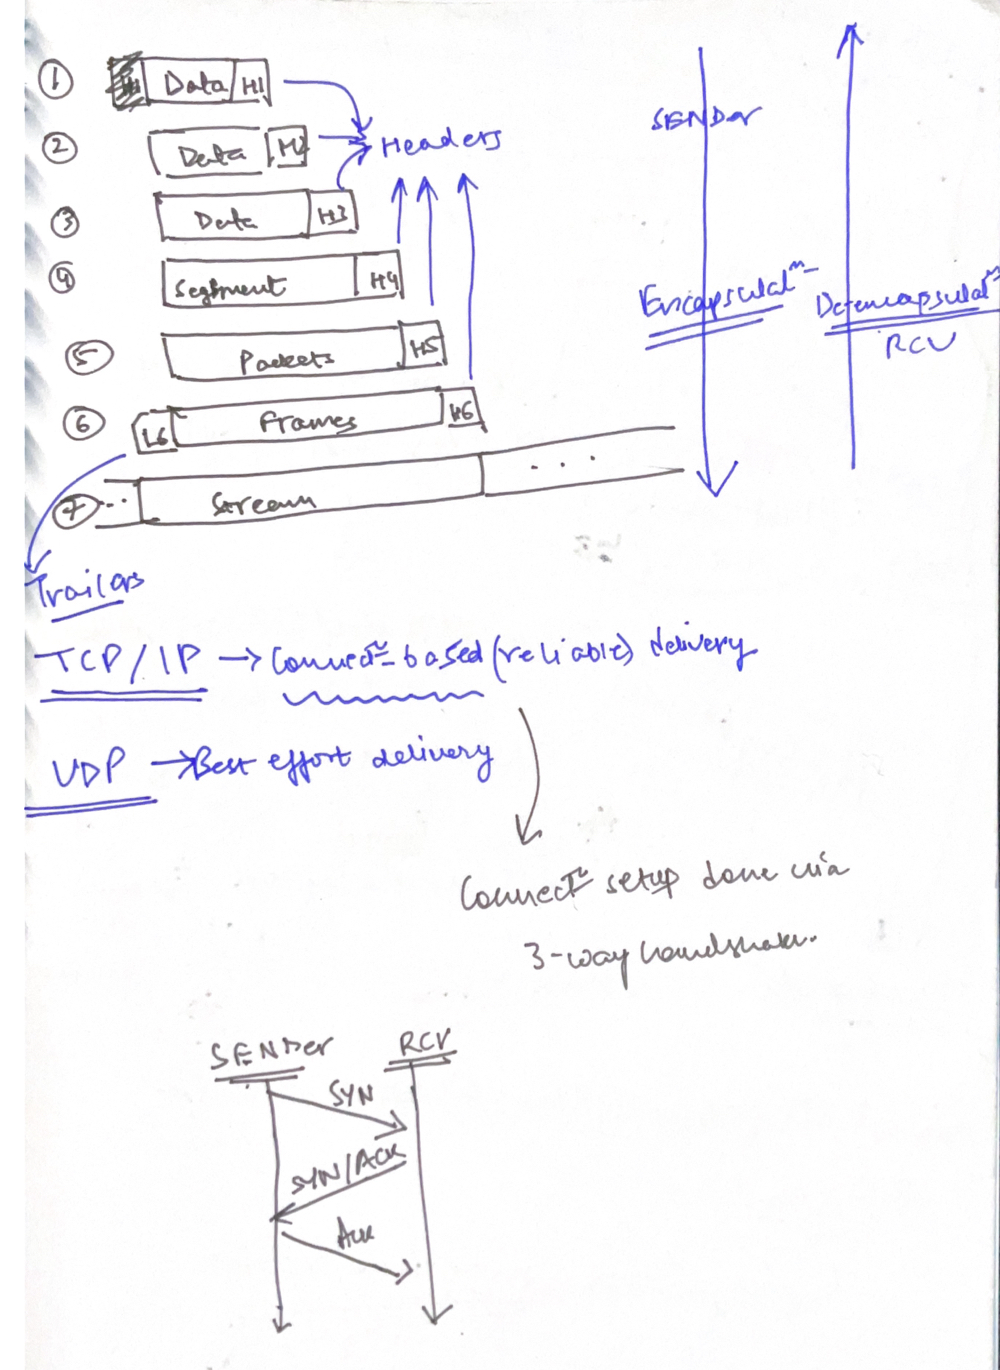 ① Data H1
② Data H2
③ Data H3
④ Segment H4
⑤ Packets H5
⑥ L6 Frames H6
⑦ ... Stream ...
Headers
SENDer
Encapsulatⁿ
Deencapsulatⁿ
RCV
Trailers
TCP/IP → Connectⁿ based (reliable) delivery
UDP → Best effort delivery
Connectⁿ setup done via
3-way handshake.
SENDer RCV
SYN
SYN/ACK
Ack